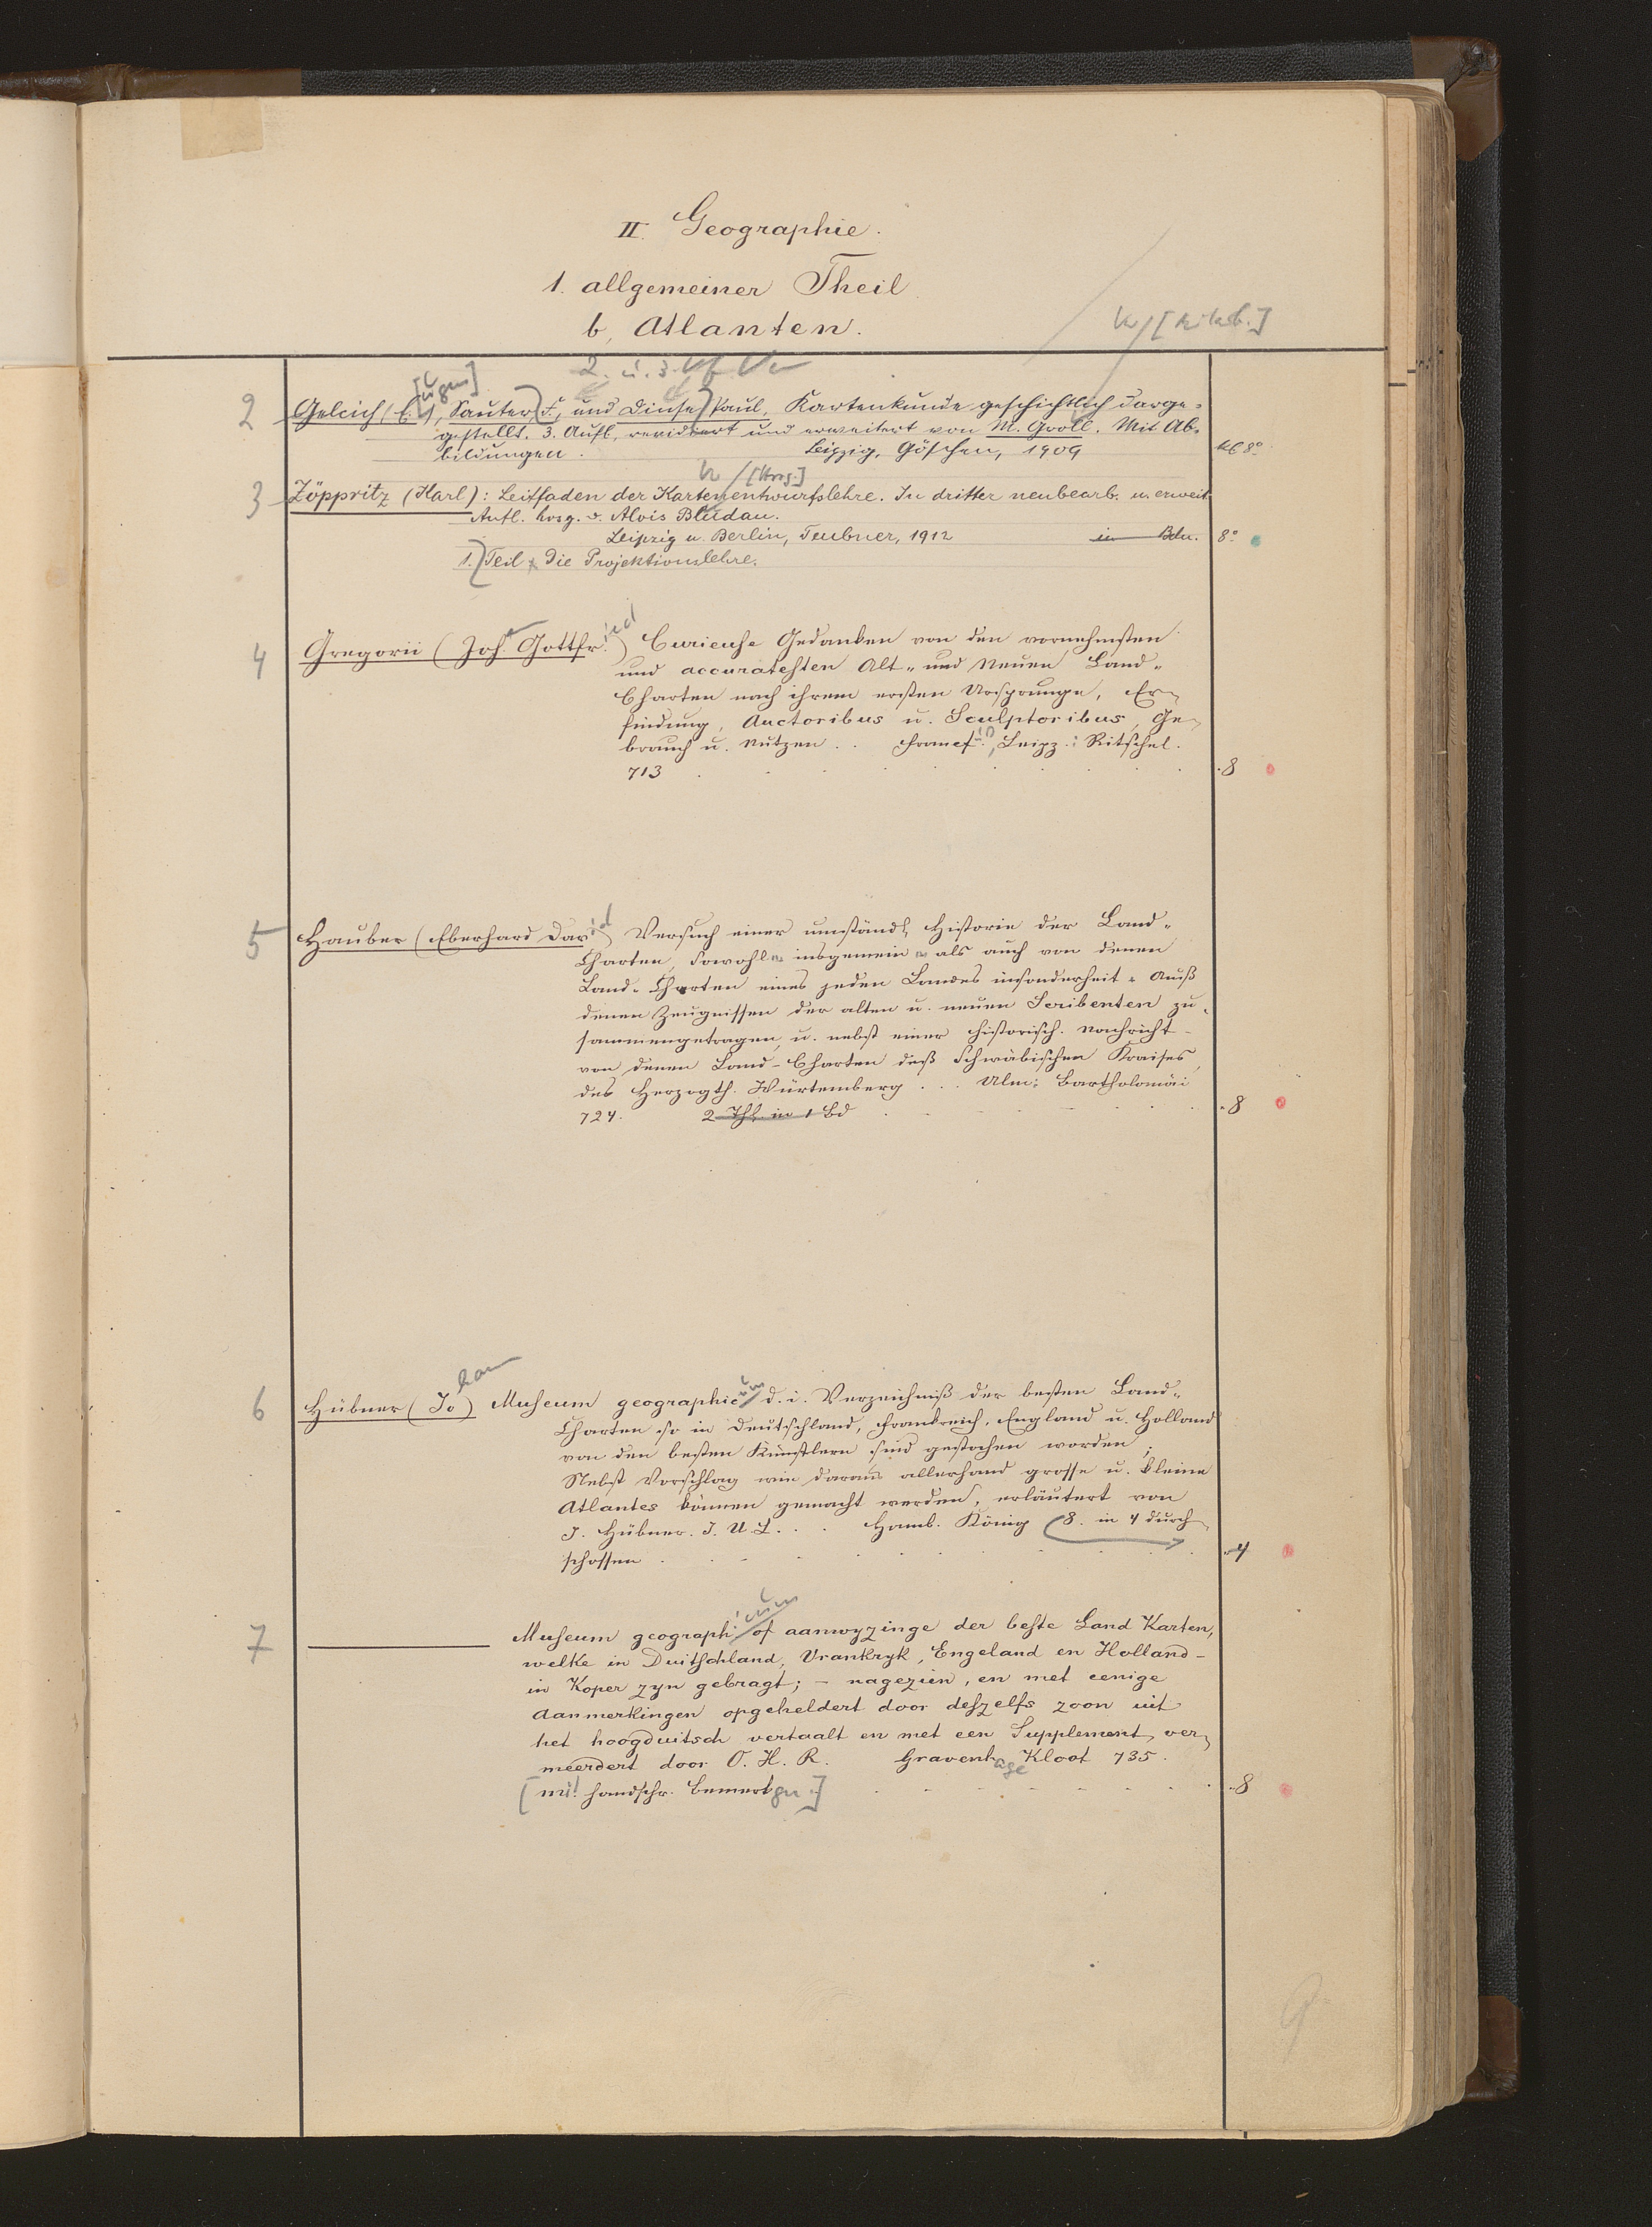 II. Geographie.
1. allgemeiner Theil
b, Atlanten.
2. u. 3. Vf Vw
2 Gelcich (E.[ugen]), Sauter F., und Dinse Paul, Kartenkunde geschichtlich darge-
gestellt. 3. Aufl, revidiert und erweitert von M. Groll. Mit Ab-
bildungen. Leipzig, Göschen, 1909 kl 8°
[Hrsg.]
3 Zöppritz (Karl): Leitfaden der Kartenentwurfslehre. In dritter neubearb. u. erweit.
Aufl. hrsg. v. Alois Bludau.
Leipzig u. Berlin, Teubner, 1912 in Bdn. 8°
1. Teil Die Projektionslehre.
4 Gregorii (Joh. Gottfried) Curieuse Gedanken von den vornehmsten
und accuratesten Alt- und Neuen Land-
Charten nach ihrem ersten Ursprunge, Er-
findung, Auctoribus u. Sculptoribus, Ge-
brauch u. Nutzen . . Francf. , Leipz.: Ritschel.
713 8
5 Hauber (Eberhard David) Versuch einer umständl. Historie der Land-
Charten, sowohl insgemein als auch von denen
Land-Charten eines jeden Landes insonderheit. Auß
denen Zeugnissen der alten u. neuen Scribenten zu-
sammengetragen, u. nebst einer historisch. Nachricht
von denen Land-Charten deß Schwäbischen Kraises,
des Herzogth. Würtemberg . . . Ulm: Bartholomäi
724. 2 Thl. in 1 Bd 8
6 Hübner (Johann) Museum geographicum d. i. Verzeichniß der besten Land-
Charten so in Deutschland, Frankreich, England u. Holland
von den besten Künstlern sind gestochen worden;
Nebst Vorschlag wie daraus allerhand grosse u. kleine
Atlantes können gemacht werden, erläutert von
J. Hübner. J. U. L. . . Hamb. König (8. in 4 durch-
schossen 4
7 Museum geographicum of aanwyzinge der beste Land Karten,
welke in Duitschland, Vrankryk, Engeland en Holland
in Koper zyn gebragt; – nagezien, en met eenige
Aanmerkingen opgeheldert door deszelfs zoon uit
het hoogduitsch vertaalt en met een Supplement ver-
meerdert door O. H. R. Gravenhage Kloot 735.
[mit handschr. Bemerkgn.] 8
9